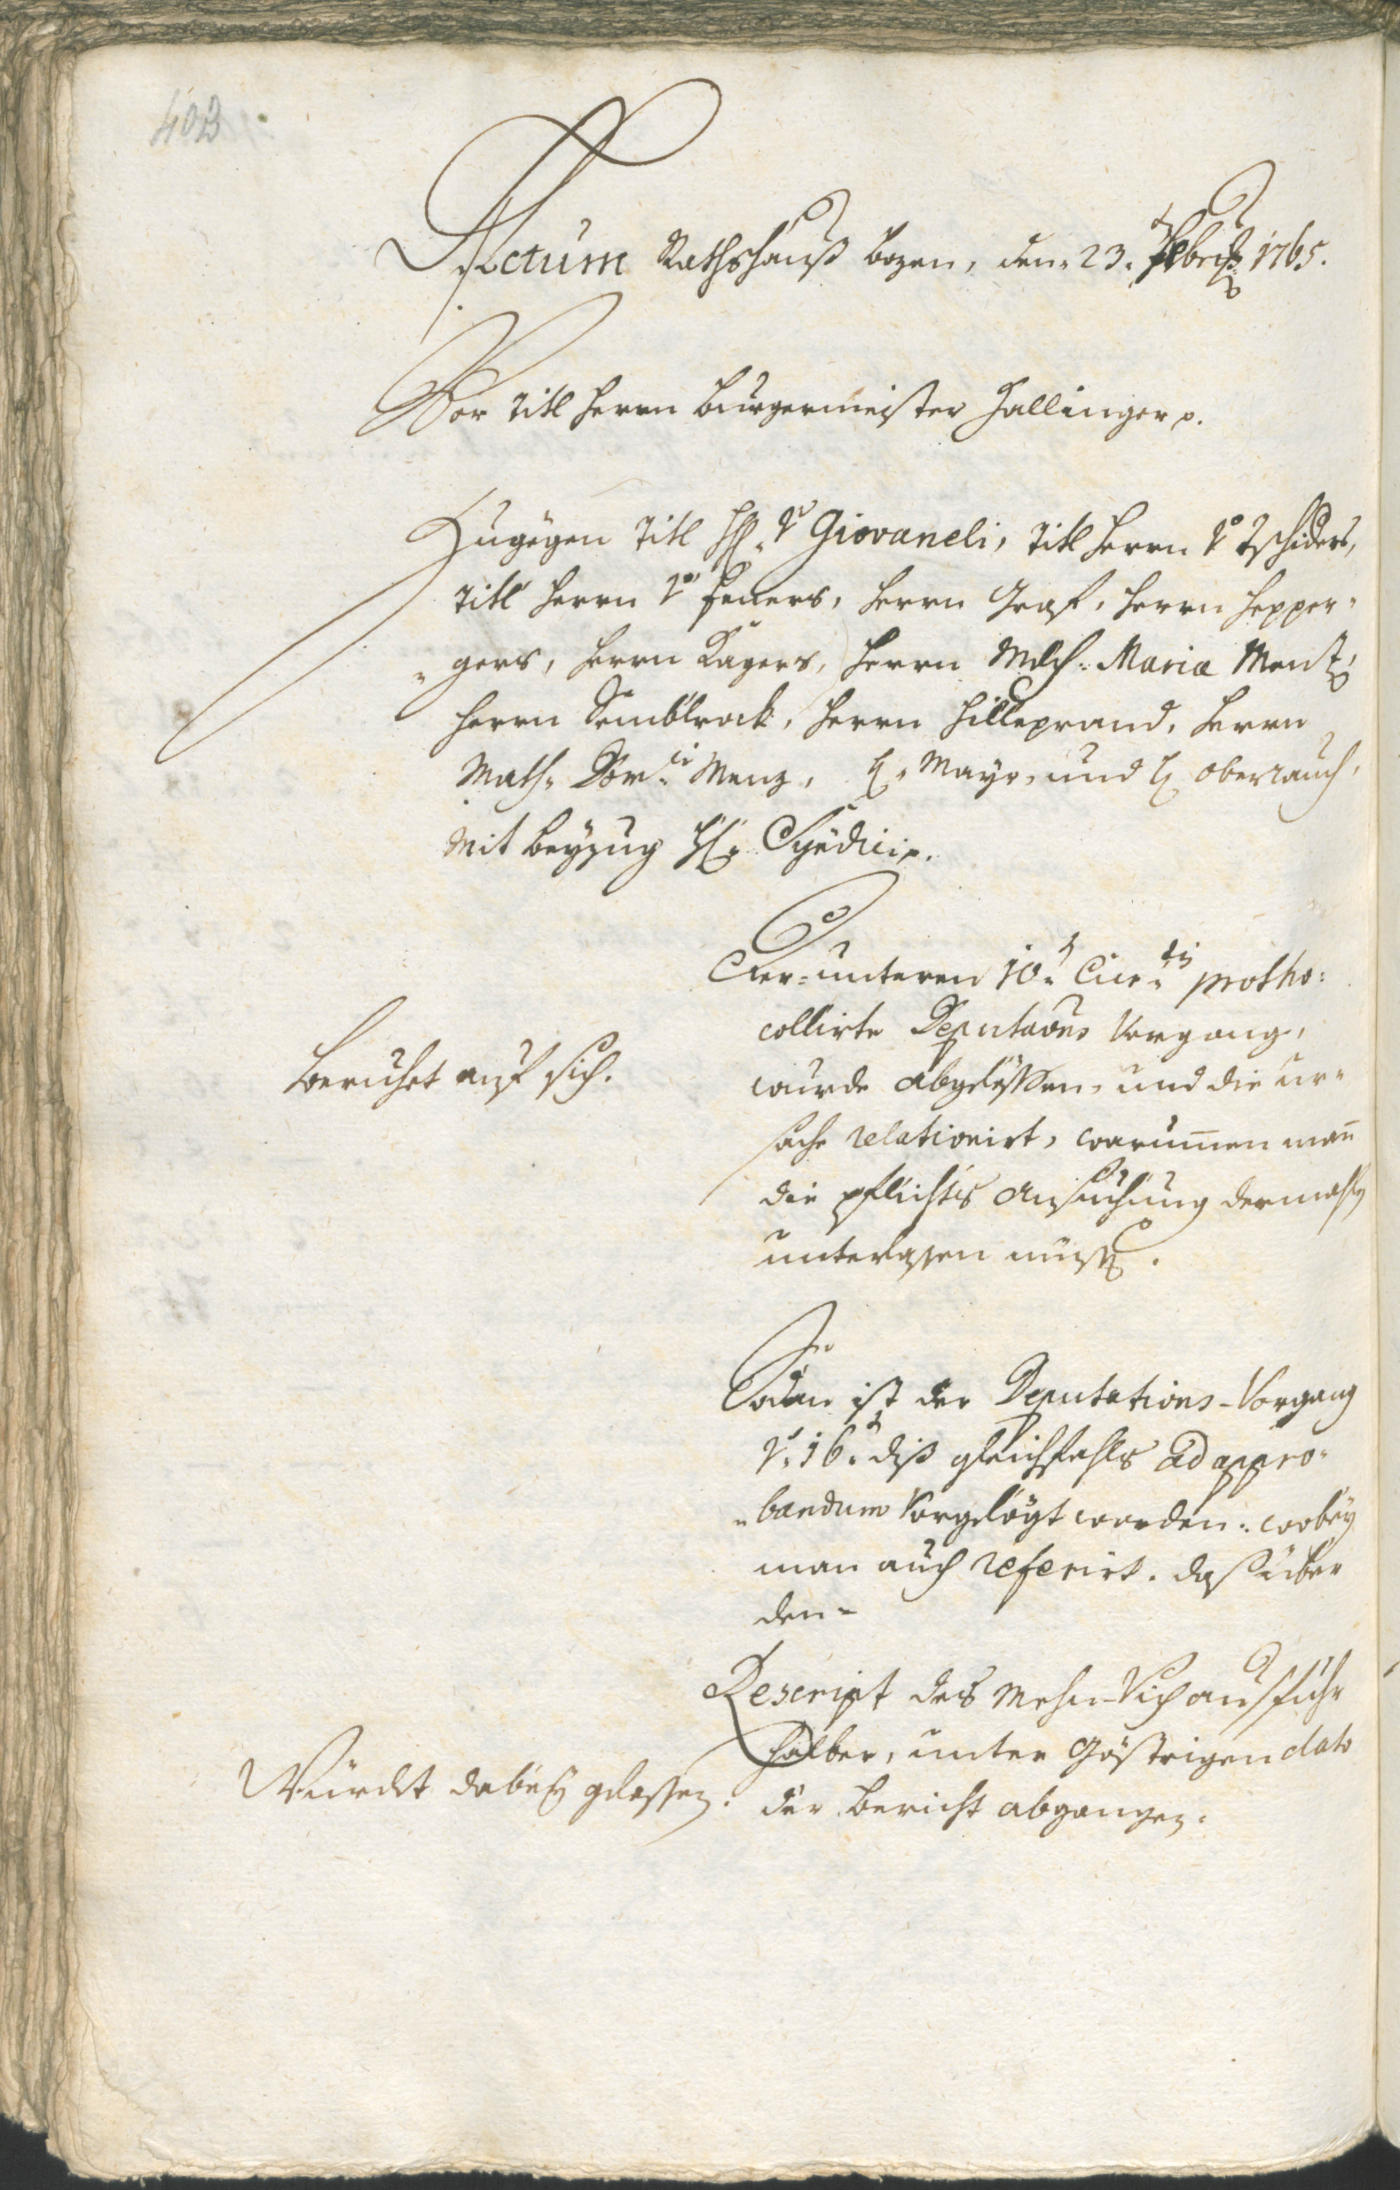 403
Actum Rathshauß Bozen, den 23. 7bris 1765.
Vor Titl Herrn Burgermeister Hallinger p.
Zugegen Titl H: v: Giovaneli, Titl Herrn v: Tschiders,
Titl Herrn v: Feners, Herrn Graf, Herrn Hepper=
=gers, Herrn Kagers, Herrn Mlch: Maria Mentz,
Herrn Semblrock, Herrn Hilleprand, Herrn
Math: Dom:ci Menz, H: Mayr, und H: Oberrauch,
Mit Beyzug H: Syndici p.
Der unteren 10: Cur: protho=
collirte Deputaons Vorgang,
wurde abgelesen, und die ur=
sache relationirt, warumen man
die pflichts Ansuchung dermahlen
unterlassen müssen.
Beruhet auf sich.
Sodan ist der Deputations-Vorgang
v: 16: diß gleichfahls ad appro=
=bandum Vorgelögt worden: wobey
man auch referirt, daß über
den=
Rescript des Mehr-Vich ausfuhr
halber, unter Göstrigen dato
der Bericht abgangen.
Würdet dabey gelassen.